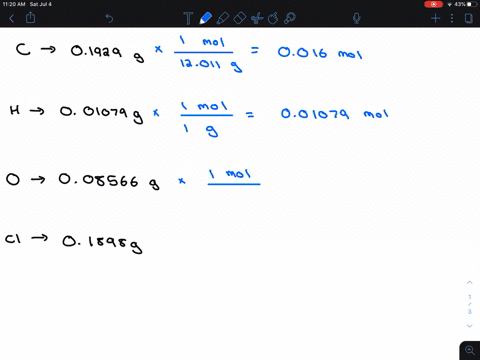 11:20 AM Sat Jul 4
43%
C → 0.1929 g × 1 mol / 12.011 g = 0.016 mol
H → 0.01079 g × 1 mol / 1 g = 0.01079 mol
O → 0.08566 g × 1 mol
Cl → 0.1898 g
1
3